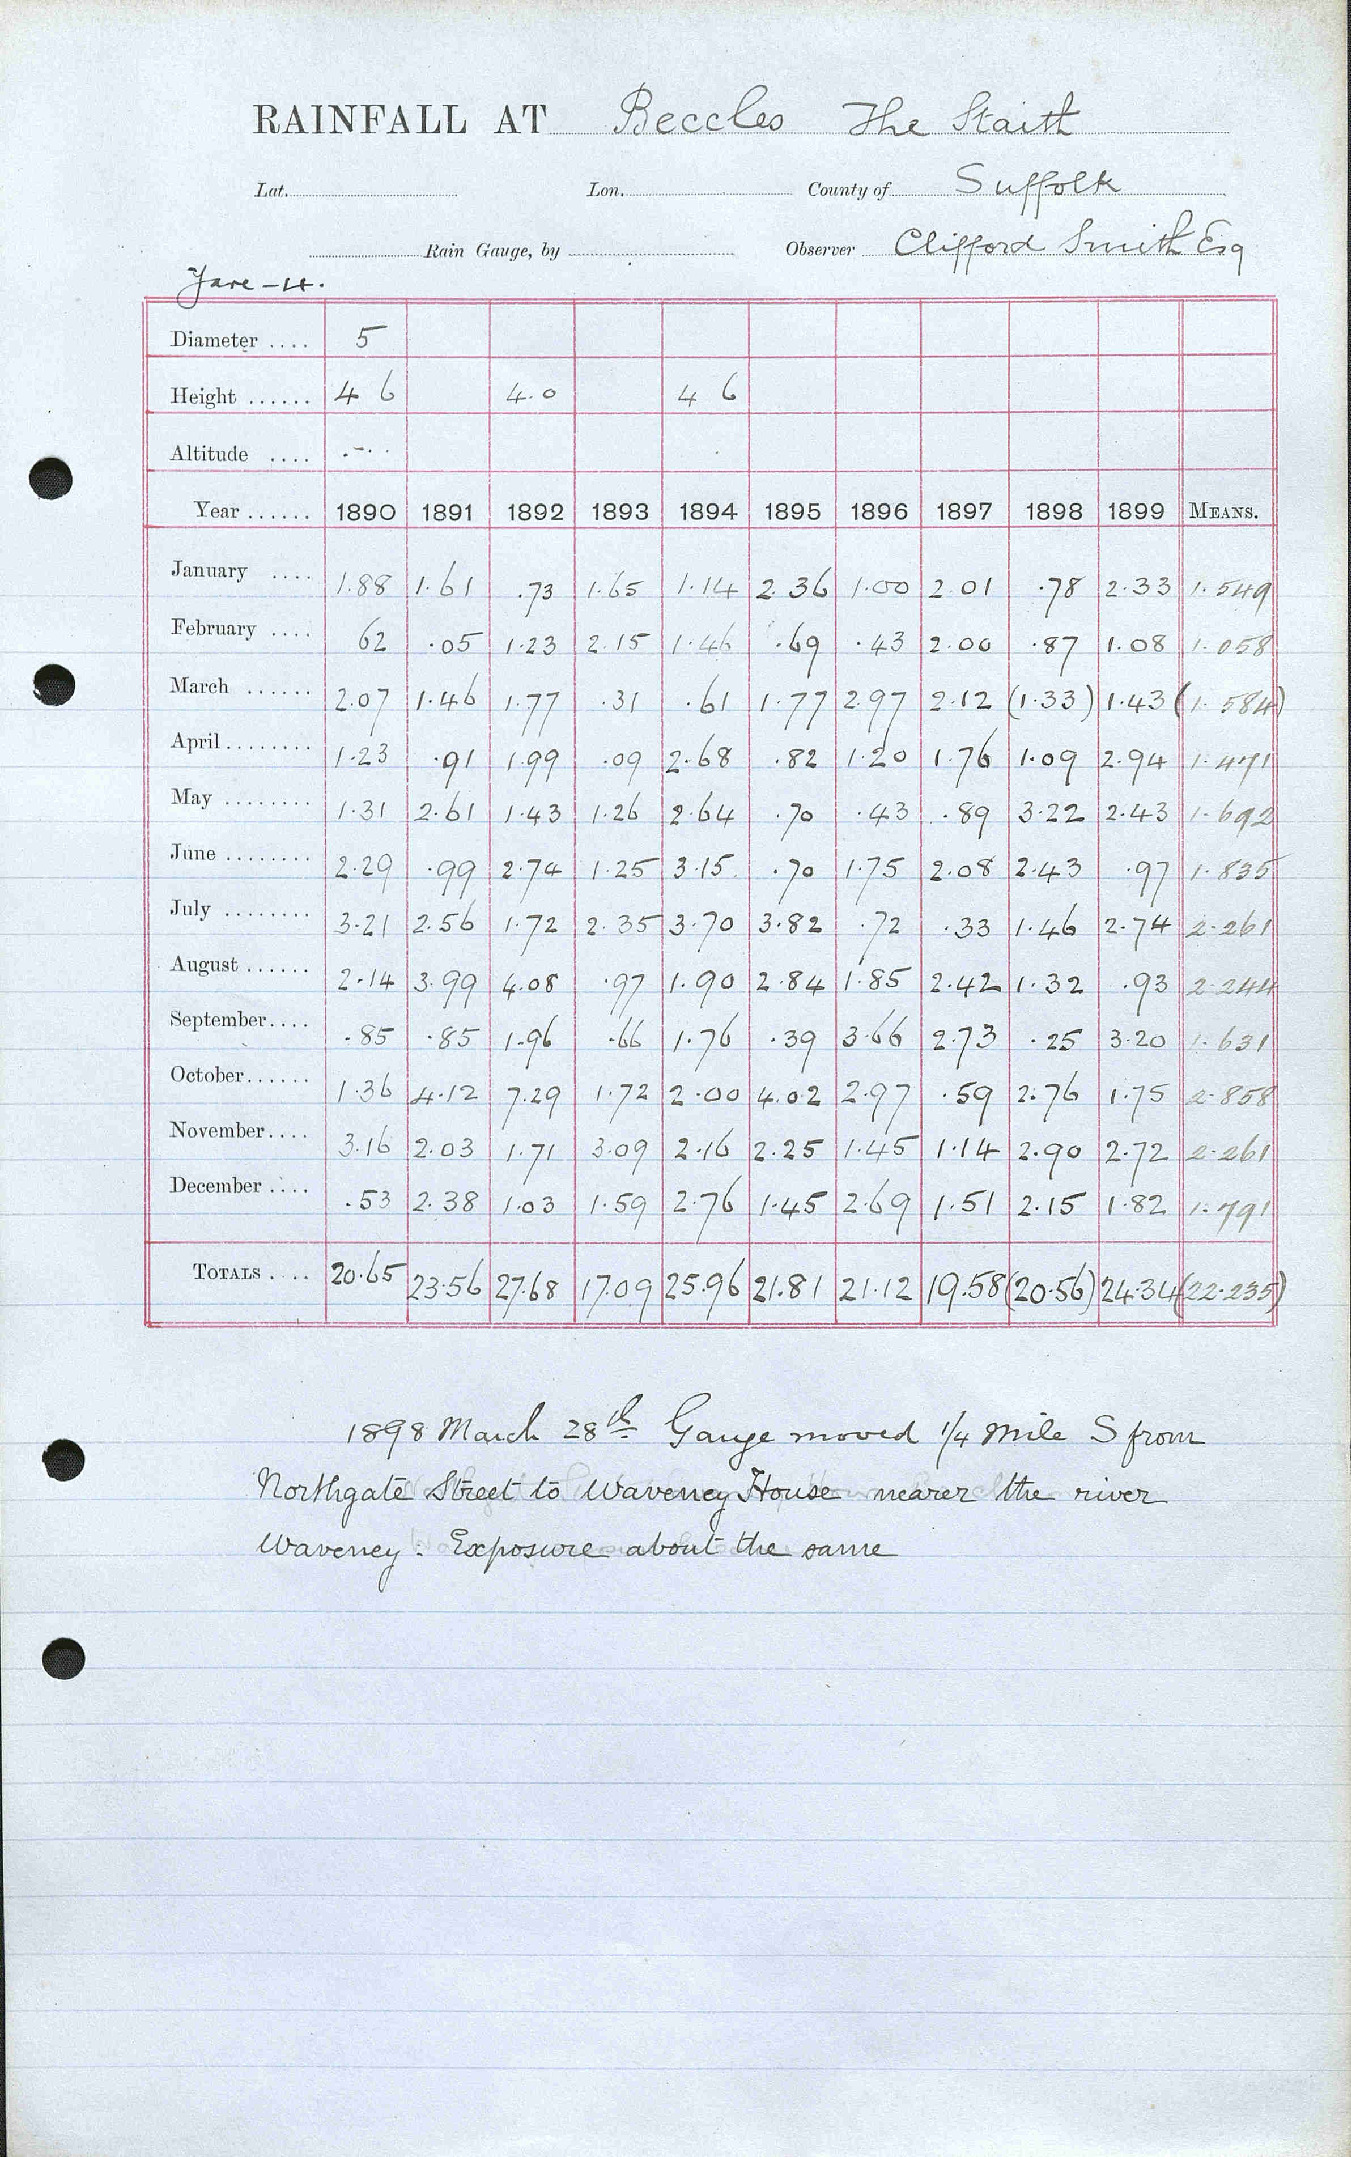 RAINFALL AT Beccles The Staith
Lat. Lon. County of Suffolk
Rain Gauge, by Observer Clifford Smith Esq
Yare - 4.
Diameter .... 5
Height ...... 4 6 4.0 4 6
Altitude .... - . .
Year ...... 1890 1891 1892 1893 1894 1895 1896 1897 1898 1899 MEANS.
January .... 1.88 1.61 .73 1.65 1.14 2.36 1.00 2.01 .78 2.33 1.549
February .... 62 .05 1.23 2.15 1.46 .69 .43 2.00 .87 1.08 1.058
March ...... 2.07 1.46 1.77 .31 .61 1.77 2.97 2.12 (1.33) 1.43 (1.584)
April ........ 1.23 .91 1.99 .09 2.68 .82 1.20 1.76 1.09 2.94 1.471
May ........ 1.31 2.61 1.43 1.26 2.64 .70 .43 .89 3.22 2.43 1.692
June ........ 2.29 .99 2.74 1.25 3.15 .70 1.75 2.08 2.43 .97 1.835
July ........ 3.21 2.56 1.72 2.35 3.70 3.82 .72 .33 1.46 2.74 2.261
August ...... 2.14 3.99 4.08 .97 1.90 2.84 1.85 2.42 1.32 .93 2.244
September.... .85 .85 1.96 .66 1.76 .39 3.66 2.73 .25 3.20 1.631
October...... 1.36 4.12 7.29 1.72 2.00 4.02 2.97 .59 2.76 1.75 2.858
November.... 3.16 2.03 1.71 3.09 2.16 2.25 1.45 1.14 2.90 2.72 2.261
December .... .53 2.38 1.03 1.59 2.76 1.45 2.69 1.51 2.15 1.82 1.791
TOTALS .... 20.65 23.56 27.68 17.09 25.96 21.81 21.12 19.58 (20.56) 24.34 (22.235)
1898 March 28th Gauge moved 1/4 mile S from
Northgate Street to Waveney House nearer the river
Waveney. Exposure about the same